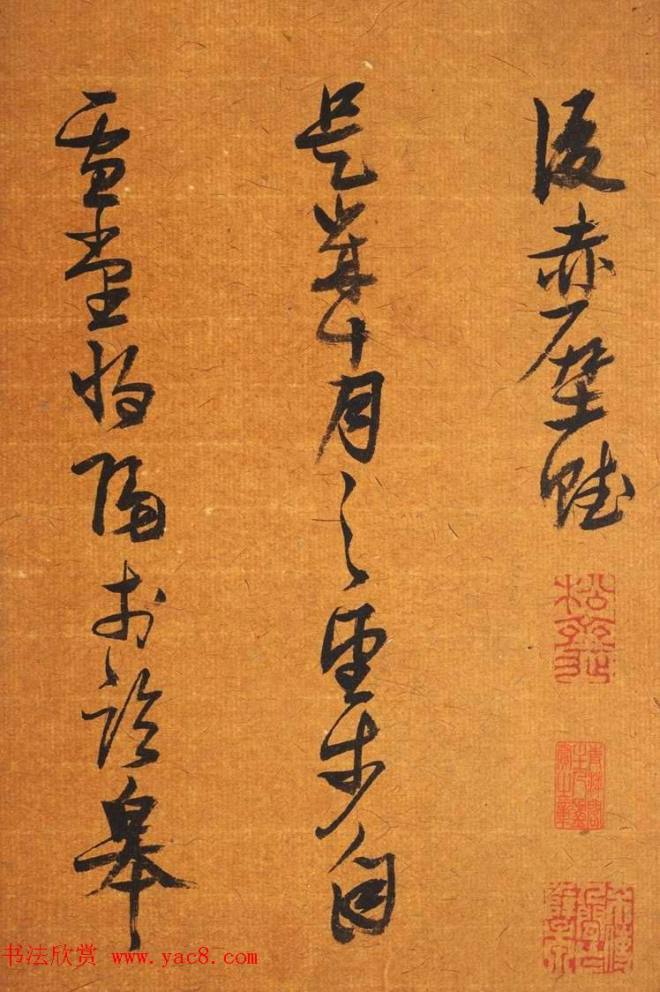 後赤壁賦
是歲十月之望步自
雪堂將歸於臨皋
书法欣赏 www.yac8.com